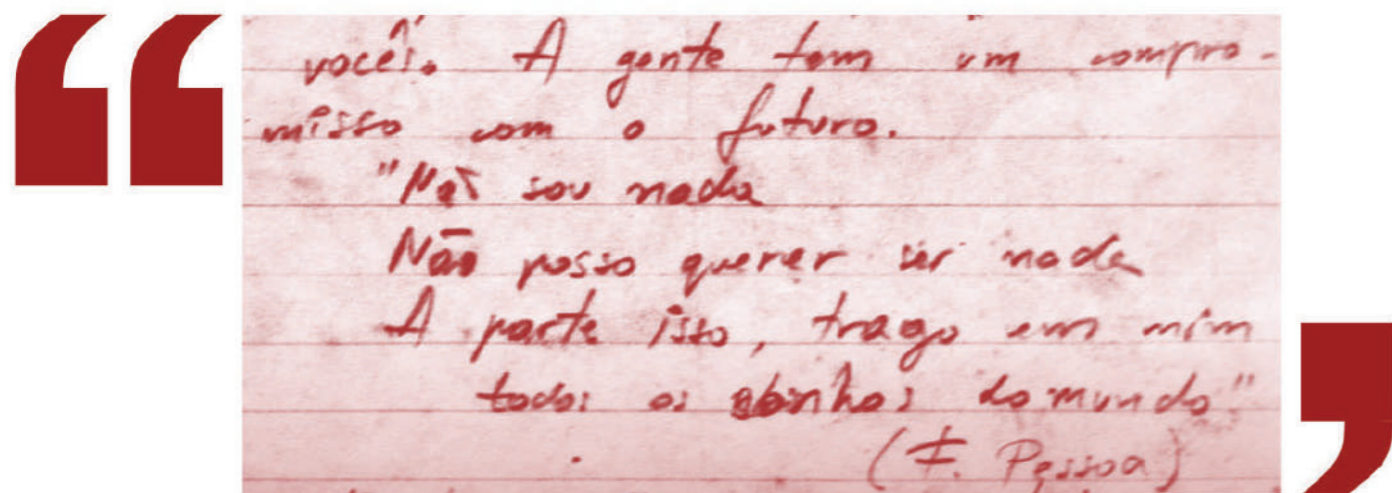 vocês. A gente tem um compro-
misso com o futuro.
"Não sou nada
Não posso querer ser nada
A parte isso, trago em mim
todos os sonhos do mundo"
(F. Pessoa)